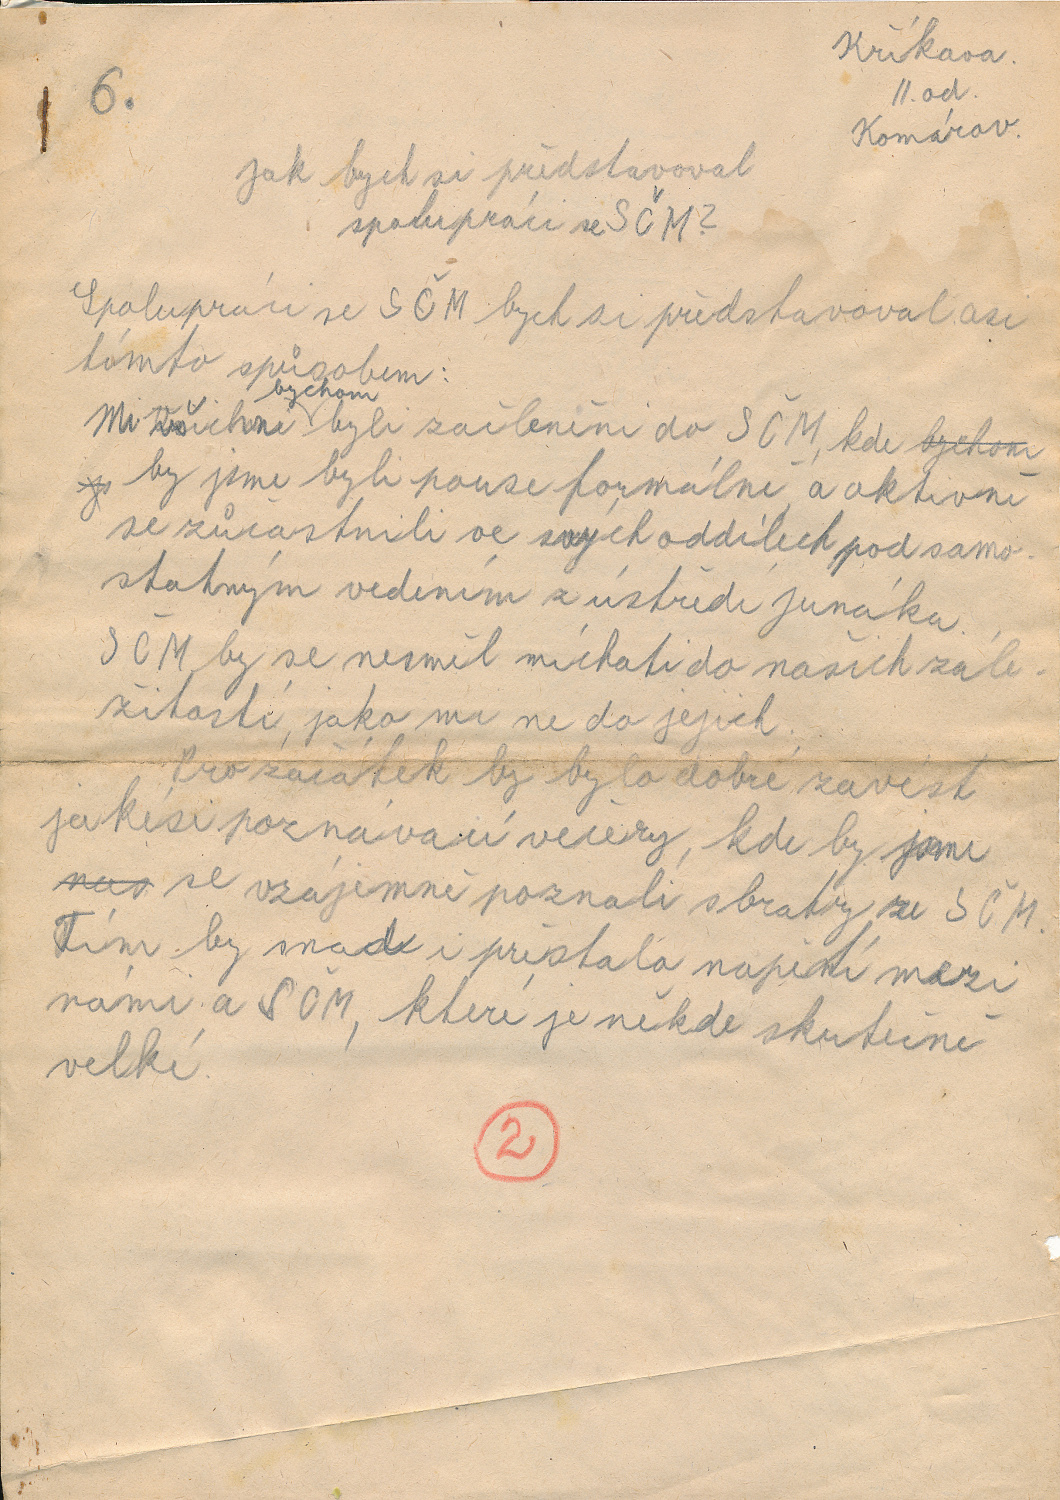 Křikava.
II. od.
Komárov.
6.
Jak bych si představoval
spolupráci se SČM?
Spolupráci se SČM bych si představoval asi
tímto spůsobem:
bychom
Mi všichni byli začleněni do SČM, kde bychom
by jsme byli pouse formálně, a aktivně
se zůčastnili ve svých oddílech pod samo-
statným vedením z ústředí Junáka.
SČM by se nesměl míchati do našich zále-
žitostí, jako mi ne do jejich.
Pro začátek by bylo dobré zavést
jakési poznávací večery, kde by jsme
nas se vzájemně poznali s bratry ze SČM.
Tím by snad i přestalo napětí mezi
námi a SČM, které je někde skutečně
velké.
2